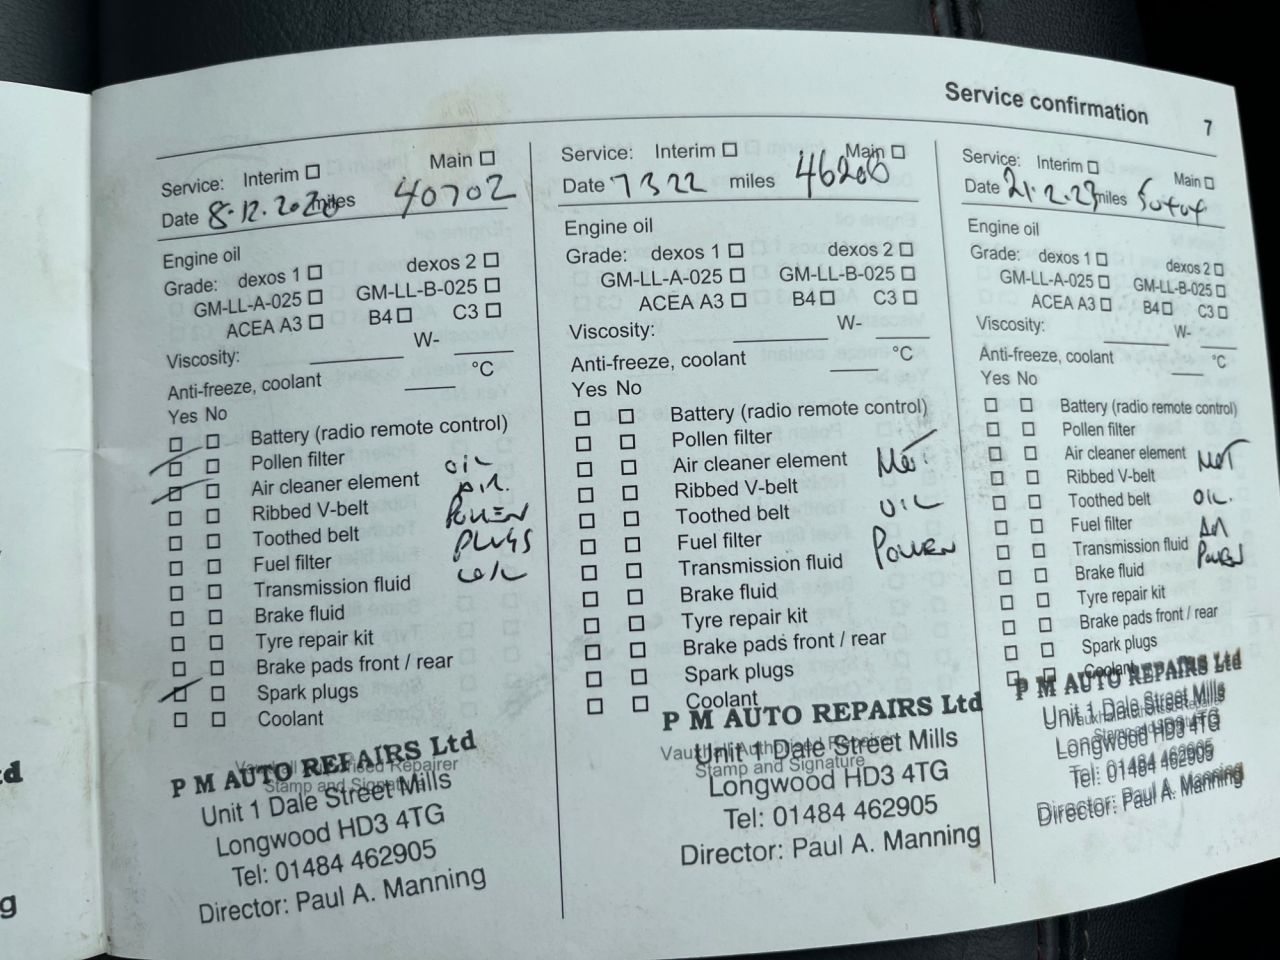 Service confirmation 7
Service: Interim Main
Date 8.12.2020 miles 40702
Engine oil
Grade: dexos 1 dexos 2
GM-LL-A-025 GM-LL-B-025
ACEA A3 B4 C3
Viscosity: W-
Anti-freeze, coolant °C
Yes No
Battery (radio remote control)
Pollen filter
Air cleaner element OIL
Ribbed V-belt AIR
Toothed belt POLLEN
Fuel filter PLUGS
Transmission fluid
Brake fluid
Tyre repair kit
Brake pads front / rear
Spark plugs
Coolant
Vauxhall Authorised Repairer
Stamp and Signature
P M AUTO REPAIRS Ltd
Unit 1 Dale Street Mills
Longwood HD3 4TG
Tel: 01484 462905
Director: Paul A. Manning
Service: Interim Main
Date 7 3 22 miles
Engine oil
Grade: dexos 1 dexos 2
GM-LL-A-025 GM-LL-B-025
ACEA A3 B4 C3
Viscosity: W-
Anti-freeze, coolant °C
Yes No
Battery (radio remote control)
Pollen filter
Air cleaner element MOT
Ribbed V-belt
Toothed belt OIL
Fuel filter
Transmission fluid POLLEN
Brake fluid
Tyre repair kit
Brake pads front / rear
Spark plugs
Coolant
Vauxhall Authorised Repairer
Stamp and Signature
P M AUTO REPAIRS Ltd
Unit 1 Dale Street Mills
Longwood HD3 4TG
Tel: 01484 462905
Director: Paul A. Manning
Service: Interim Main
Date 21.2.23 miles
Engine oil
Grade: dexos 1 dexos 2
GM-LL-A-025 GM-LL-B-025
ACEA A3 B4 C3
Viscosity: W-
Anti-freeze, coolant °C
Yes No
Battery (radio remote control)
Pollen filter
Air cleaner element MOT
Ribbed V-belt
Toothed belt OIL.
Fuel filter
Transmission fluid POLLEN
Brake fluid
Tyre repair kit
Brake pads front / rear
Spark plugs
Coolant
P M AUTO REPAIRS Ltd
Unit 1 Dale Street Mills
Longwood HD3 4TG
Tel: 01484 462905
Director: Paul A. Manning